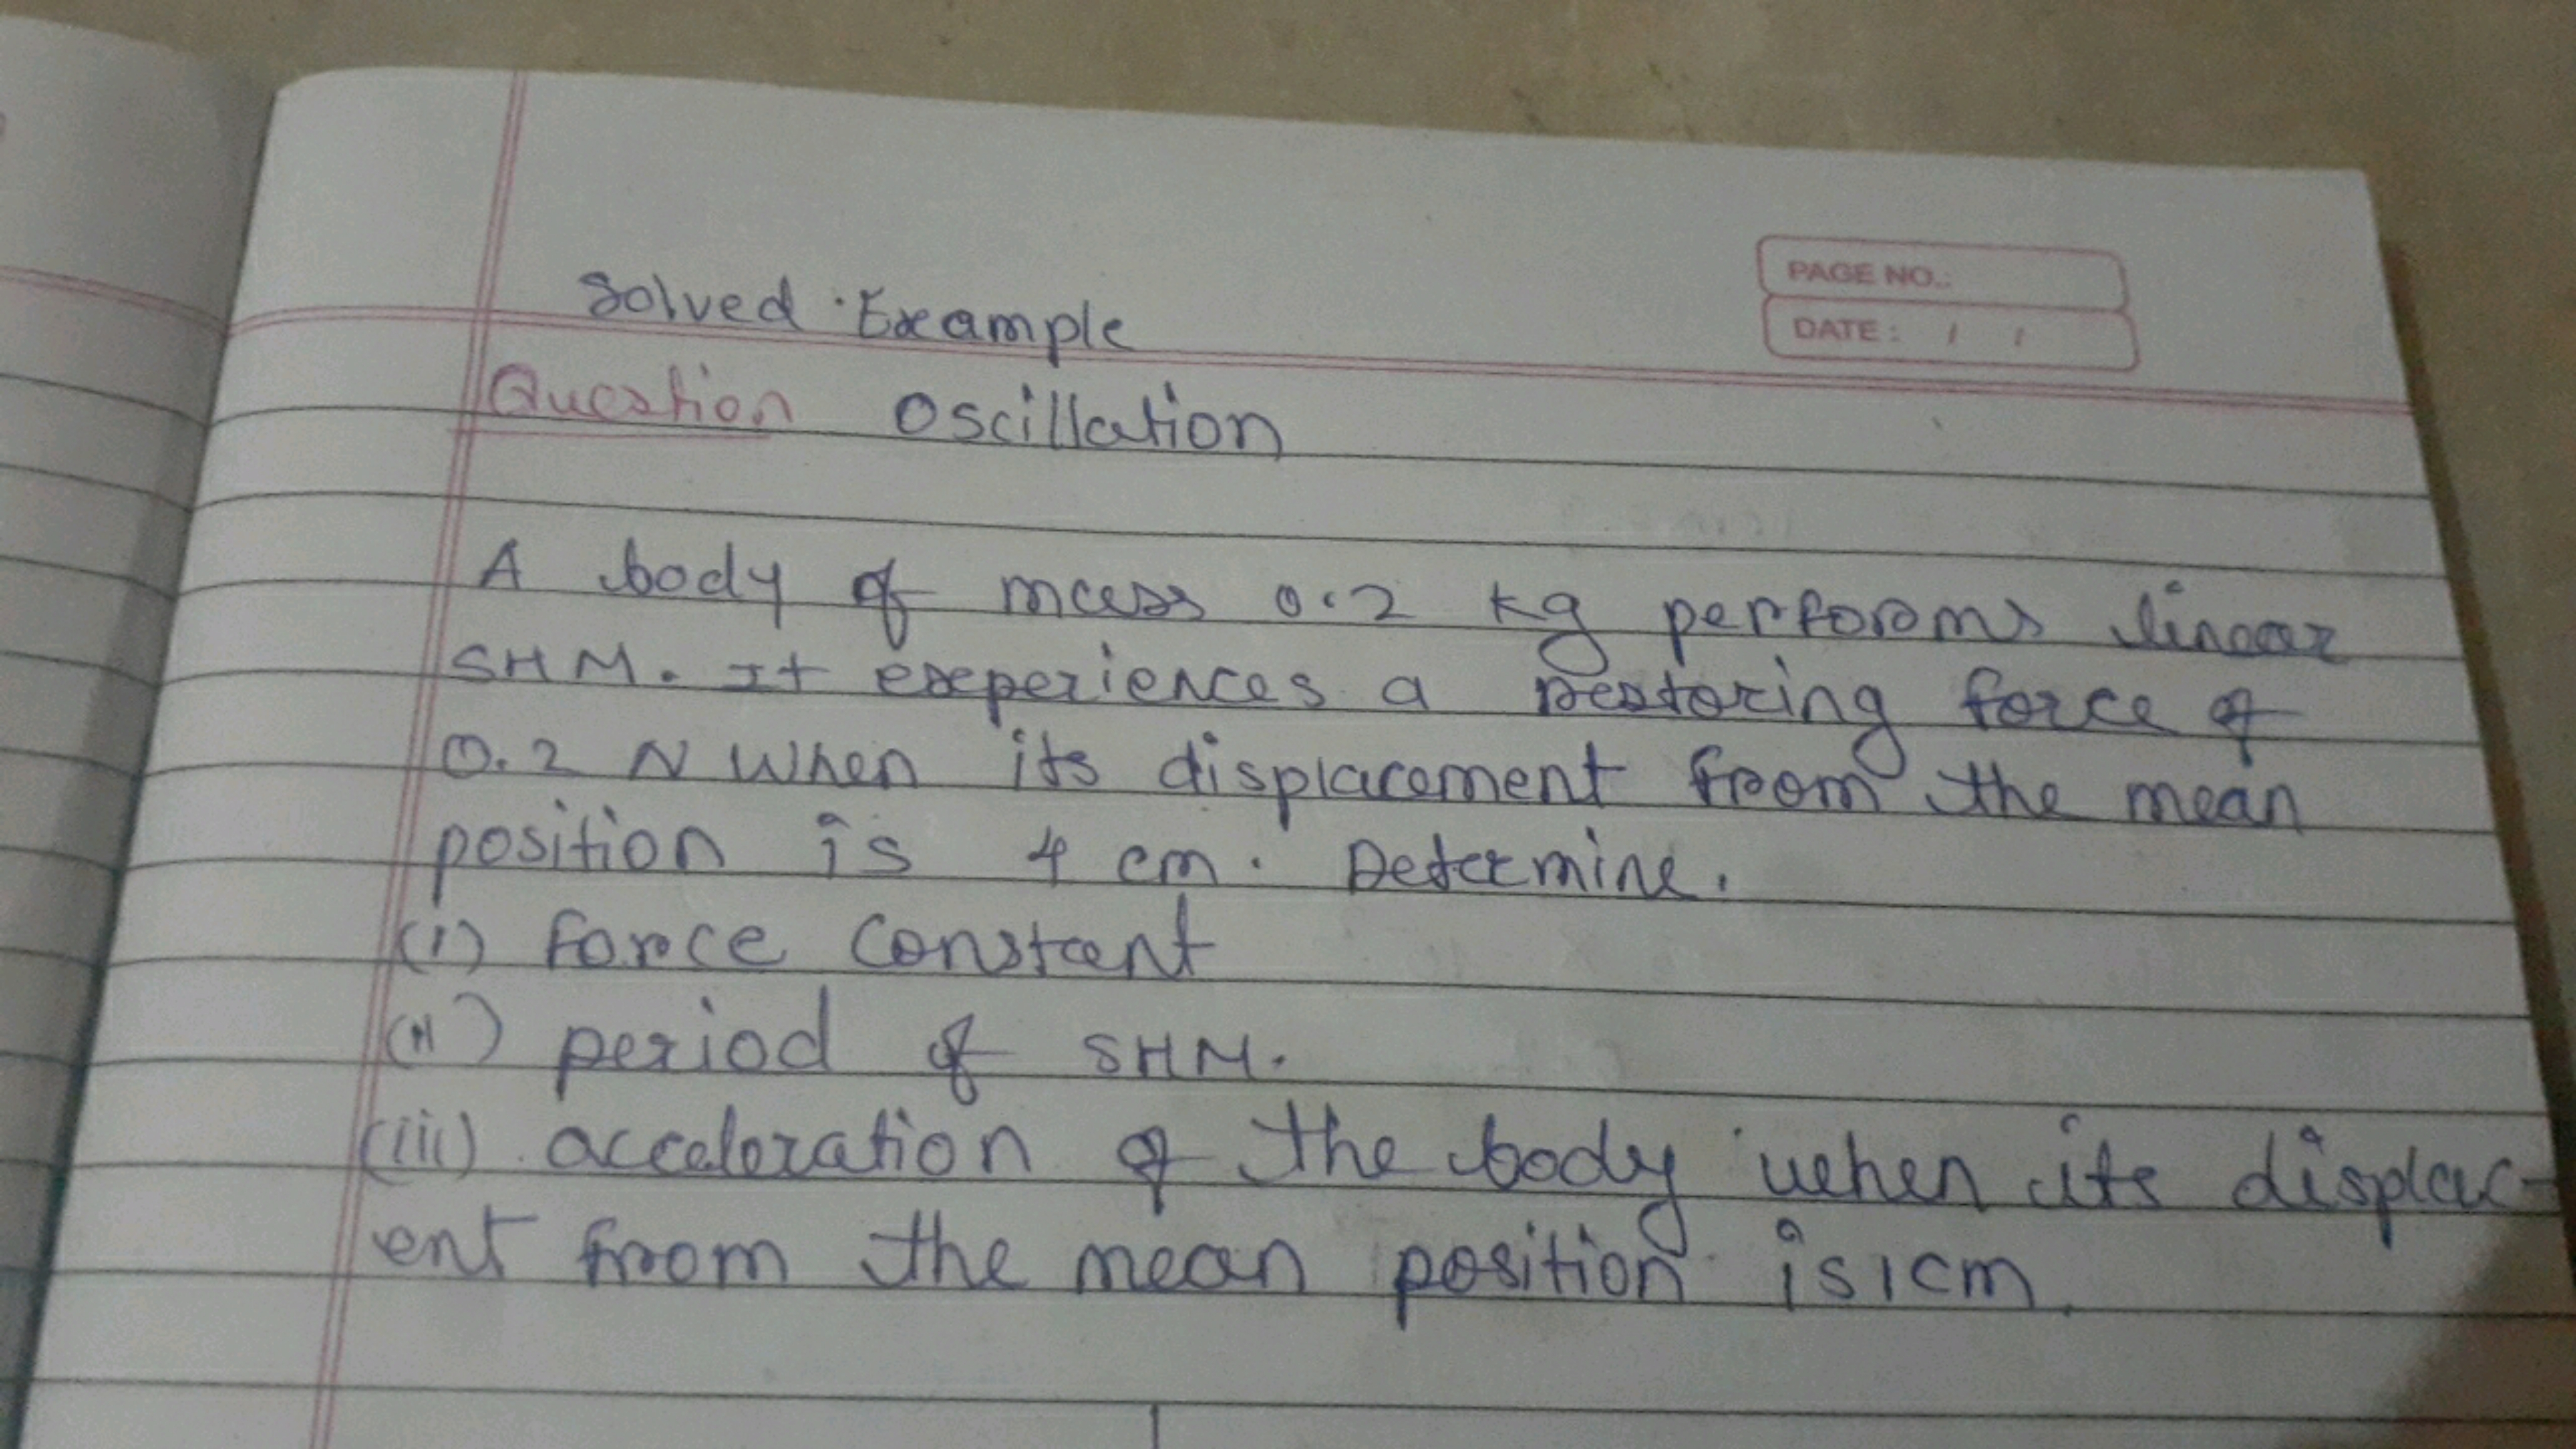 Solved Example
PAGE NO.:
DATE: / /
Question Oscillation
A body of mass 0.2 kg performs linear
SHM. It experiences a restoring force of
0.2 N when its displacement from the mean
position is 4 cm. Determine.
(i) force constant
(ii) period of SHM.
(iii) acceleration of the body when its displac-
ent from the mean position is 1 cm.